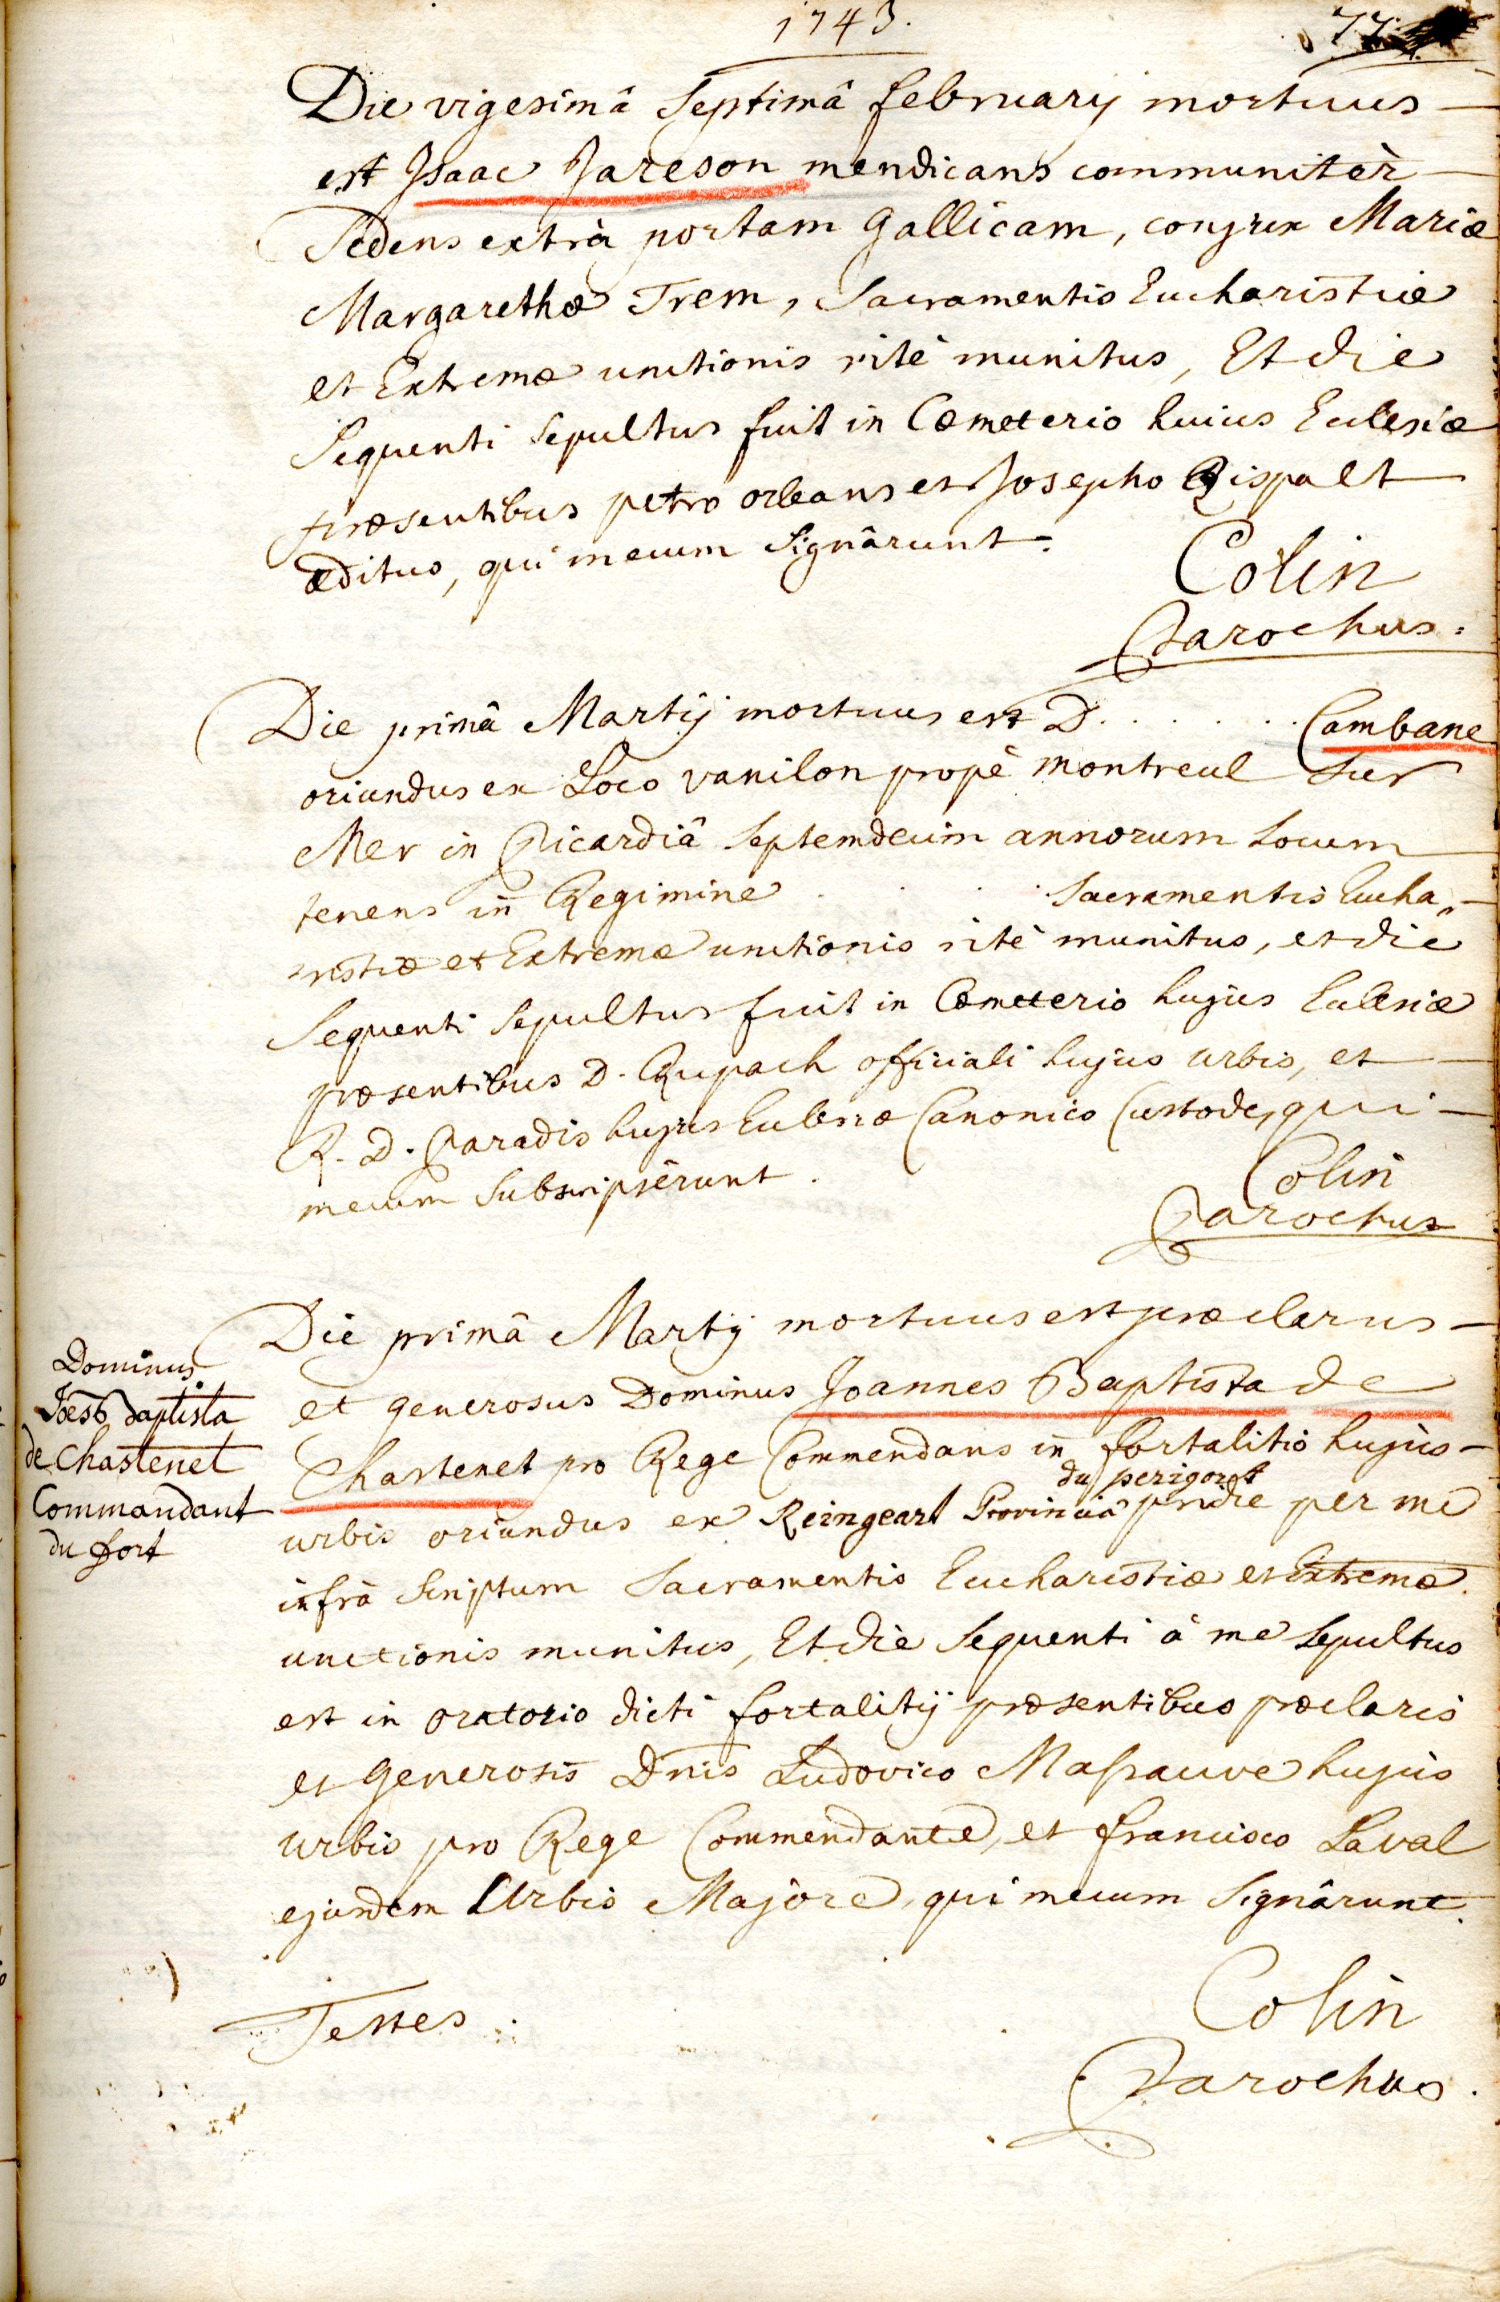 1743.
77
Die vigesimâ Septimâ february mortuus
est Isaac Jareson mendicans communitèr
Sedens extrà portam Gallicam, conjux Mariæ
Margarethæ Trem, Sacramentis Eucharistiæ
et Extremæ unctionis ritè munitus, Et die
Sequenti Sepultus fuit in Cœmeterio huius Ecclesiæ
præsentibus petro orleans et Josepho Rispalt
ædituo, qui mecum Signârunt.
Colin
Parochus.
Die primâ Martij mortuus est D. . . . . . . Cambane
oriundus ex Loco vanilon propè montreul Sur
Mer in Picardiâ Septemdecim annorum Locum
tenens in Regimine . . . . Sacramentis Eucha„
ristiæ et Extremæ unctionis ritè munitus, et die
Sequenti Sepultus fuit in Cœmeterio hujus Ecclesiæ
præsentibus D. Rupach officiali hujus urbis, et
R. D. Paradis hujus Ecclesiæ Canonico Custode, qui
mecum Subscripsêrunt.
Colin
Parochus
Die primâ Martij mortuus est præclarus
et generosus Dominus Joannes Baptista de
Chastenet pro Rege Commendans in fortalitio hujus
du perigord
urbis oriundus ex Reingeart Provinciâ pridie per me
infrà Scriptum Sacramentis Eucharistiæ et Extremæ
unctionis munitus, Et die Sequenti à me Sepultus
est in oratorio dicti fortalitij præsentibus præclaris
et Generosis Dnis Ludovico Massauve hujus
urbis pro Rege Commendante, et francisco Laval
ejusdem Urbis Majore, qui mecum Signârunt.
Dominus
Joes Baptista
de Chastenet
Commandant
du fort
Testes
Colin
Parochus.